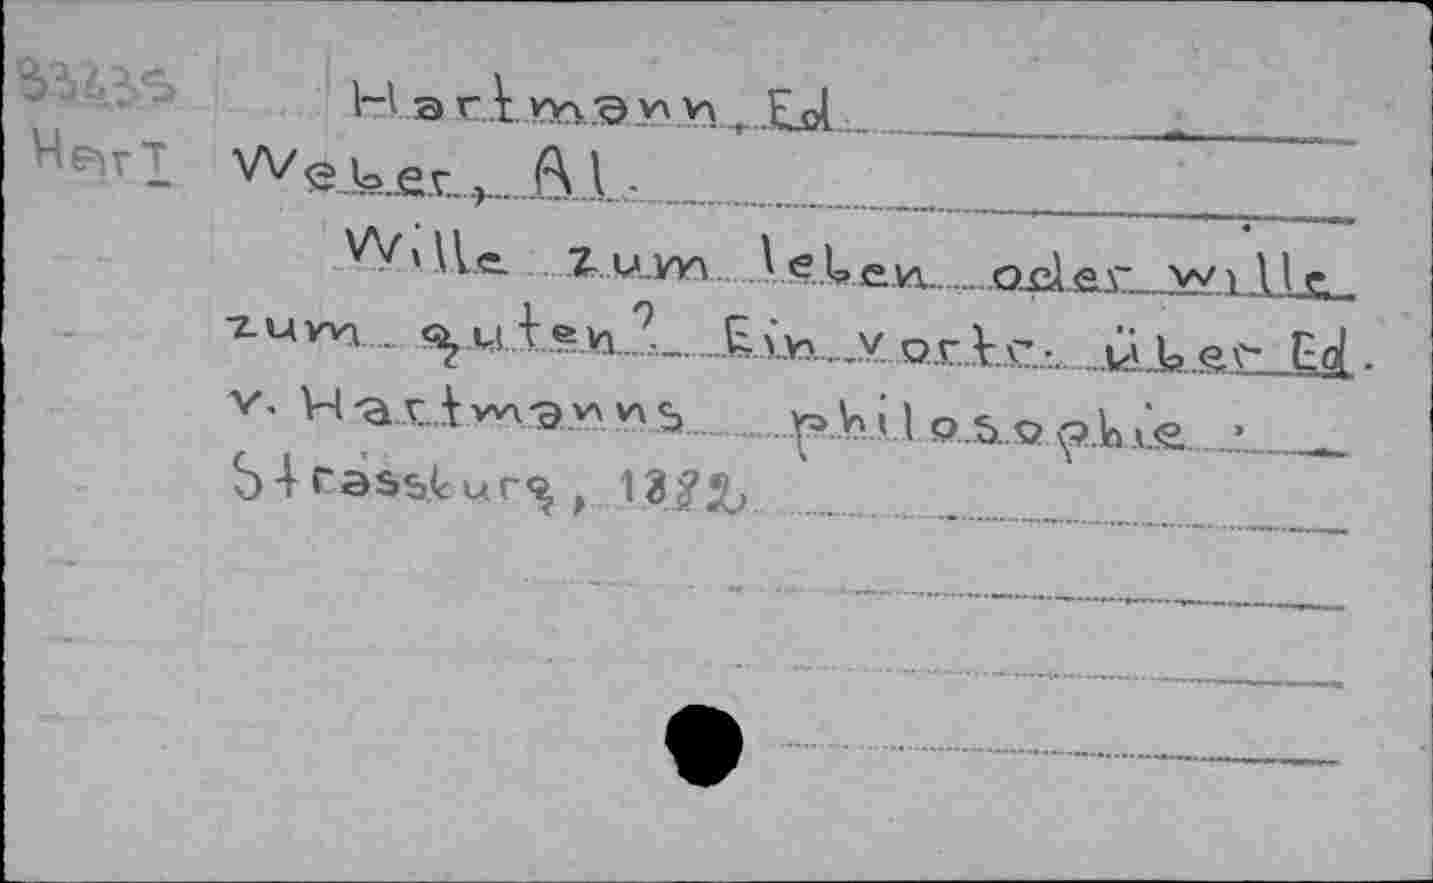 Hartmann, Ed
HarT Weber, Al.
Wille zum leben oder wille
zum guten? Ein vortr. über Ed.
v. Hartmanns philosophie.
Strassburg,